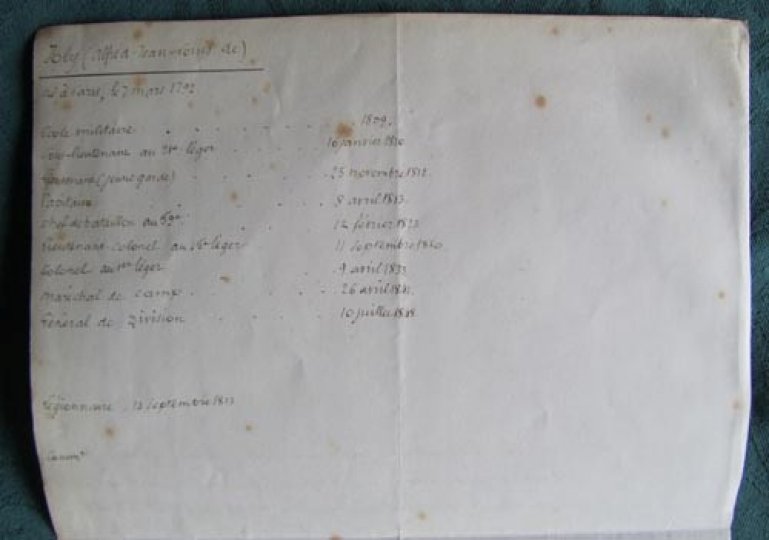 (Alfred-Jean-Louis de)
né à Paris, le 7 mars 1792
École militaire 1809.
Sous-lieutenant au léger 16 janvier 1810
Lieutenant (jeune garde) 25 novembre 1812.
Capitaine 8 avril 1813.
Chef de bataillon au 12 février 1823
Lieutenant-colonel au léger 11 septembre 1830
Colonel au léger 9 avril 1833
Maréchal de camp 26 avril
Général de Division 10 juillet
Légionnaire, septembre 1813